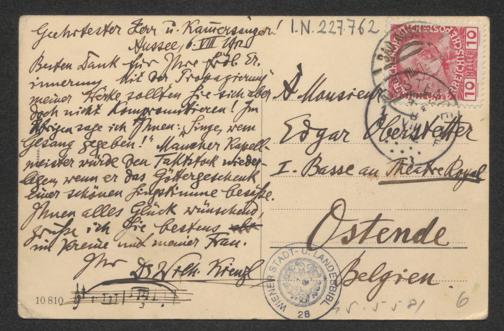 Geehrtester Herr u. Kammersänger!
Aussee, 6. VIII
I.N. 227.762
Besten Dank für Ihre frdl. Er-
innerung. Mit der Propagierung
meiner Werke sollten Sie sich aber
doch nicht kompromittieren! Im
Übrigen sage ich Ihnen: "Singe, wem
Gesang gegeben!" Mancher Kapell-
meister würde den Taktstok nieder-
legen, wenn er das Göttergeschenk
einer schönen Singstimme besäße.
Ihnen alles Glück wünschend,
grüße ich Sie bestens
in Freude und meiner Frau.
Ihr
Dr Wilh. Kienzl
10 810
10 10
A Monsieur
Edgar Oberstetter
I. Basse au Théâtre Royal
Ostende
Belgien.
WIENER STADT- U. LANDESBIBL.
28
6